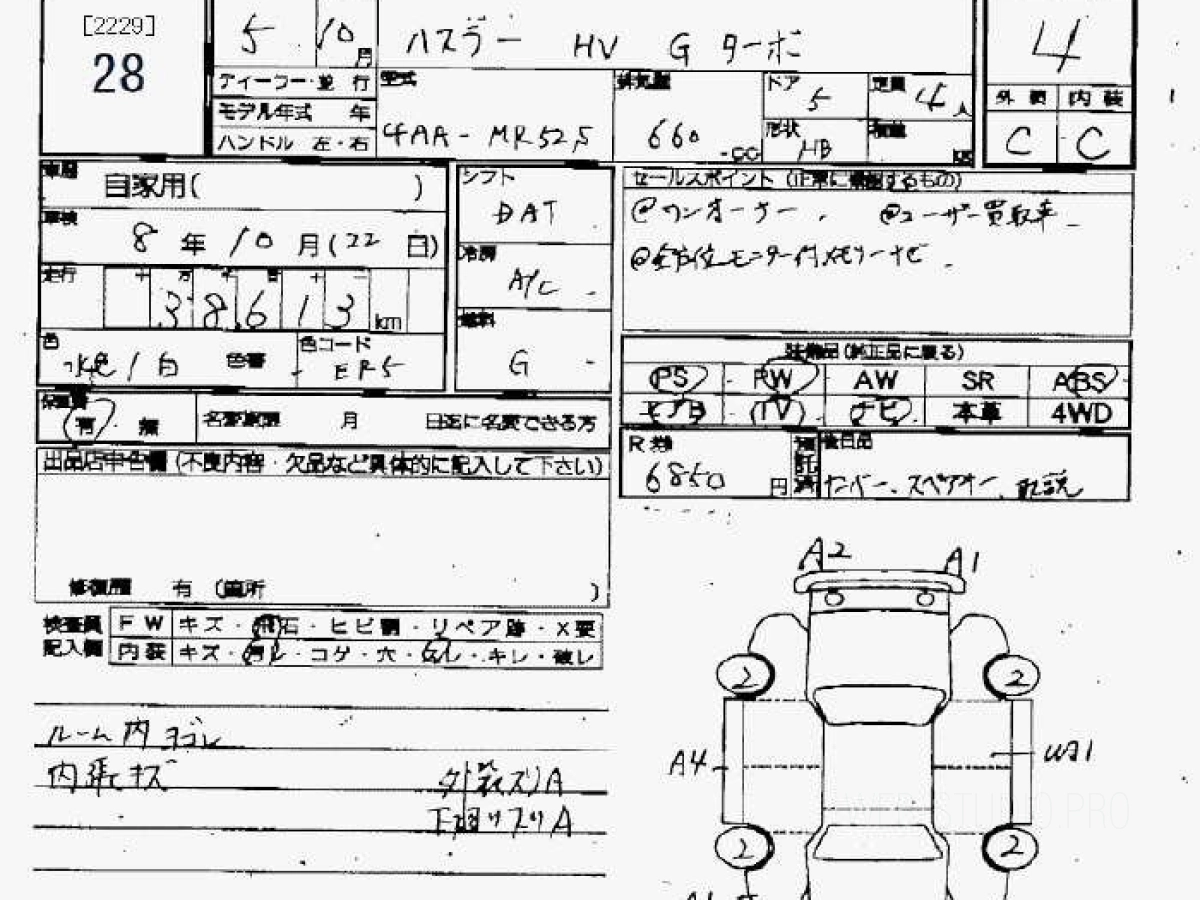 [2229]
28
5 10月
ハスラー HV G ターボ
4
ディーラー・並 行
モデル年式 年
ハンドル 左・右
型式
4AA-MR52S
排気量
660 cc
ドア
5
定員
4人
形状
HB
積載
外 装 内 装
C C
車歴
自家用( )
車検
8年10月(22日)
走行
38,613 km
色
水色/白 色替
色コード
ER5
シフト
DAT
冷房
A/C
燃料
G
セールスポイント (正常に機能するもの)
@ワンオーナー. @ユーザー買取車
@全方位モニター付メモリーナビ
装備品(純正品に限る)
PS PW AW SR ABS
エアB TV ナビ 本革 4WD
保証書
有・無
名変期限 月 日迄に名変できる方
R券
6850円
後日品
ナンバー、スペアキー、取説
出品店申告欄(不良内容・欠品など具体的に記入して下さい)
修復歴 有 (箇所 )
検査員
記入欄
FW キズ・飛石・ヒビ割・リペア跡・X要
内装 キズ・汚レ・コゲ・穴・スレ・キレ・破レ
ルーム内ヨゴレ
内張キズ
外装スリA
下廻りスリA
A2 A1
2 2
A4
W31
2 2